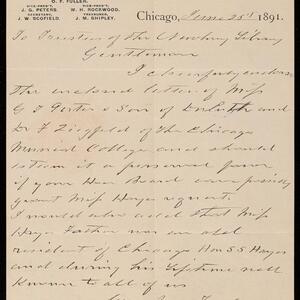 O. F. FULLER.
VICE-PRES'T. VICE-PRES'T.
J. G. PETERS. W. H. ROCKWOOD.
SECRETARY, TREASURER,
J. W. SCOFIELD. J. M. SHIPLEY.
Chicago, June 25th 1891.
To Trustees of the Newberry Library
Gentlemen
I cheerfully endorse
the enclosed letter of Miss
G F & Son of Duluth and
Dr F Ziegfeld of the Chicago
Musical College and should
esteem it a personal favor
if your Hon Board can possibly
grant Miss Hayes request.
I would also add that Miss
Hayes Father was an old
resident of Chicago Hon S S Hayes
and during his lifetime well
Known to all of us